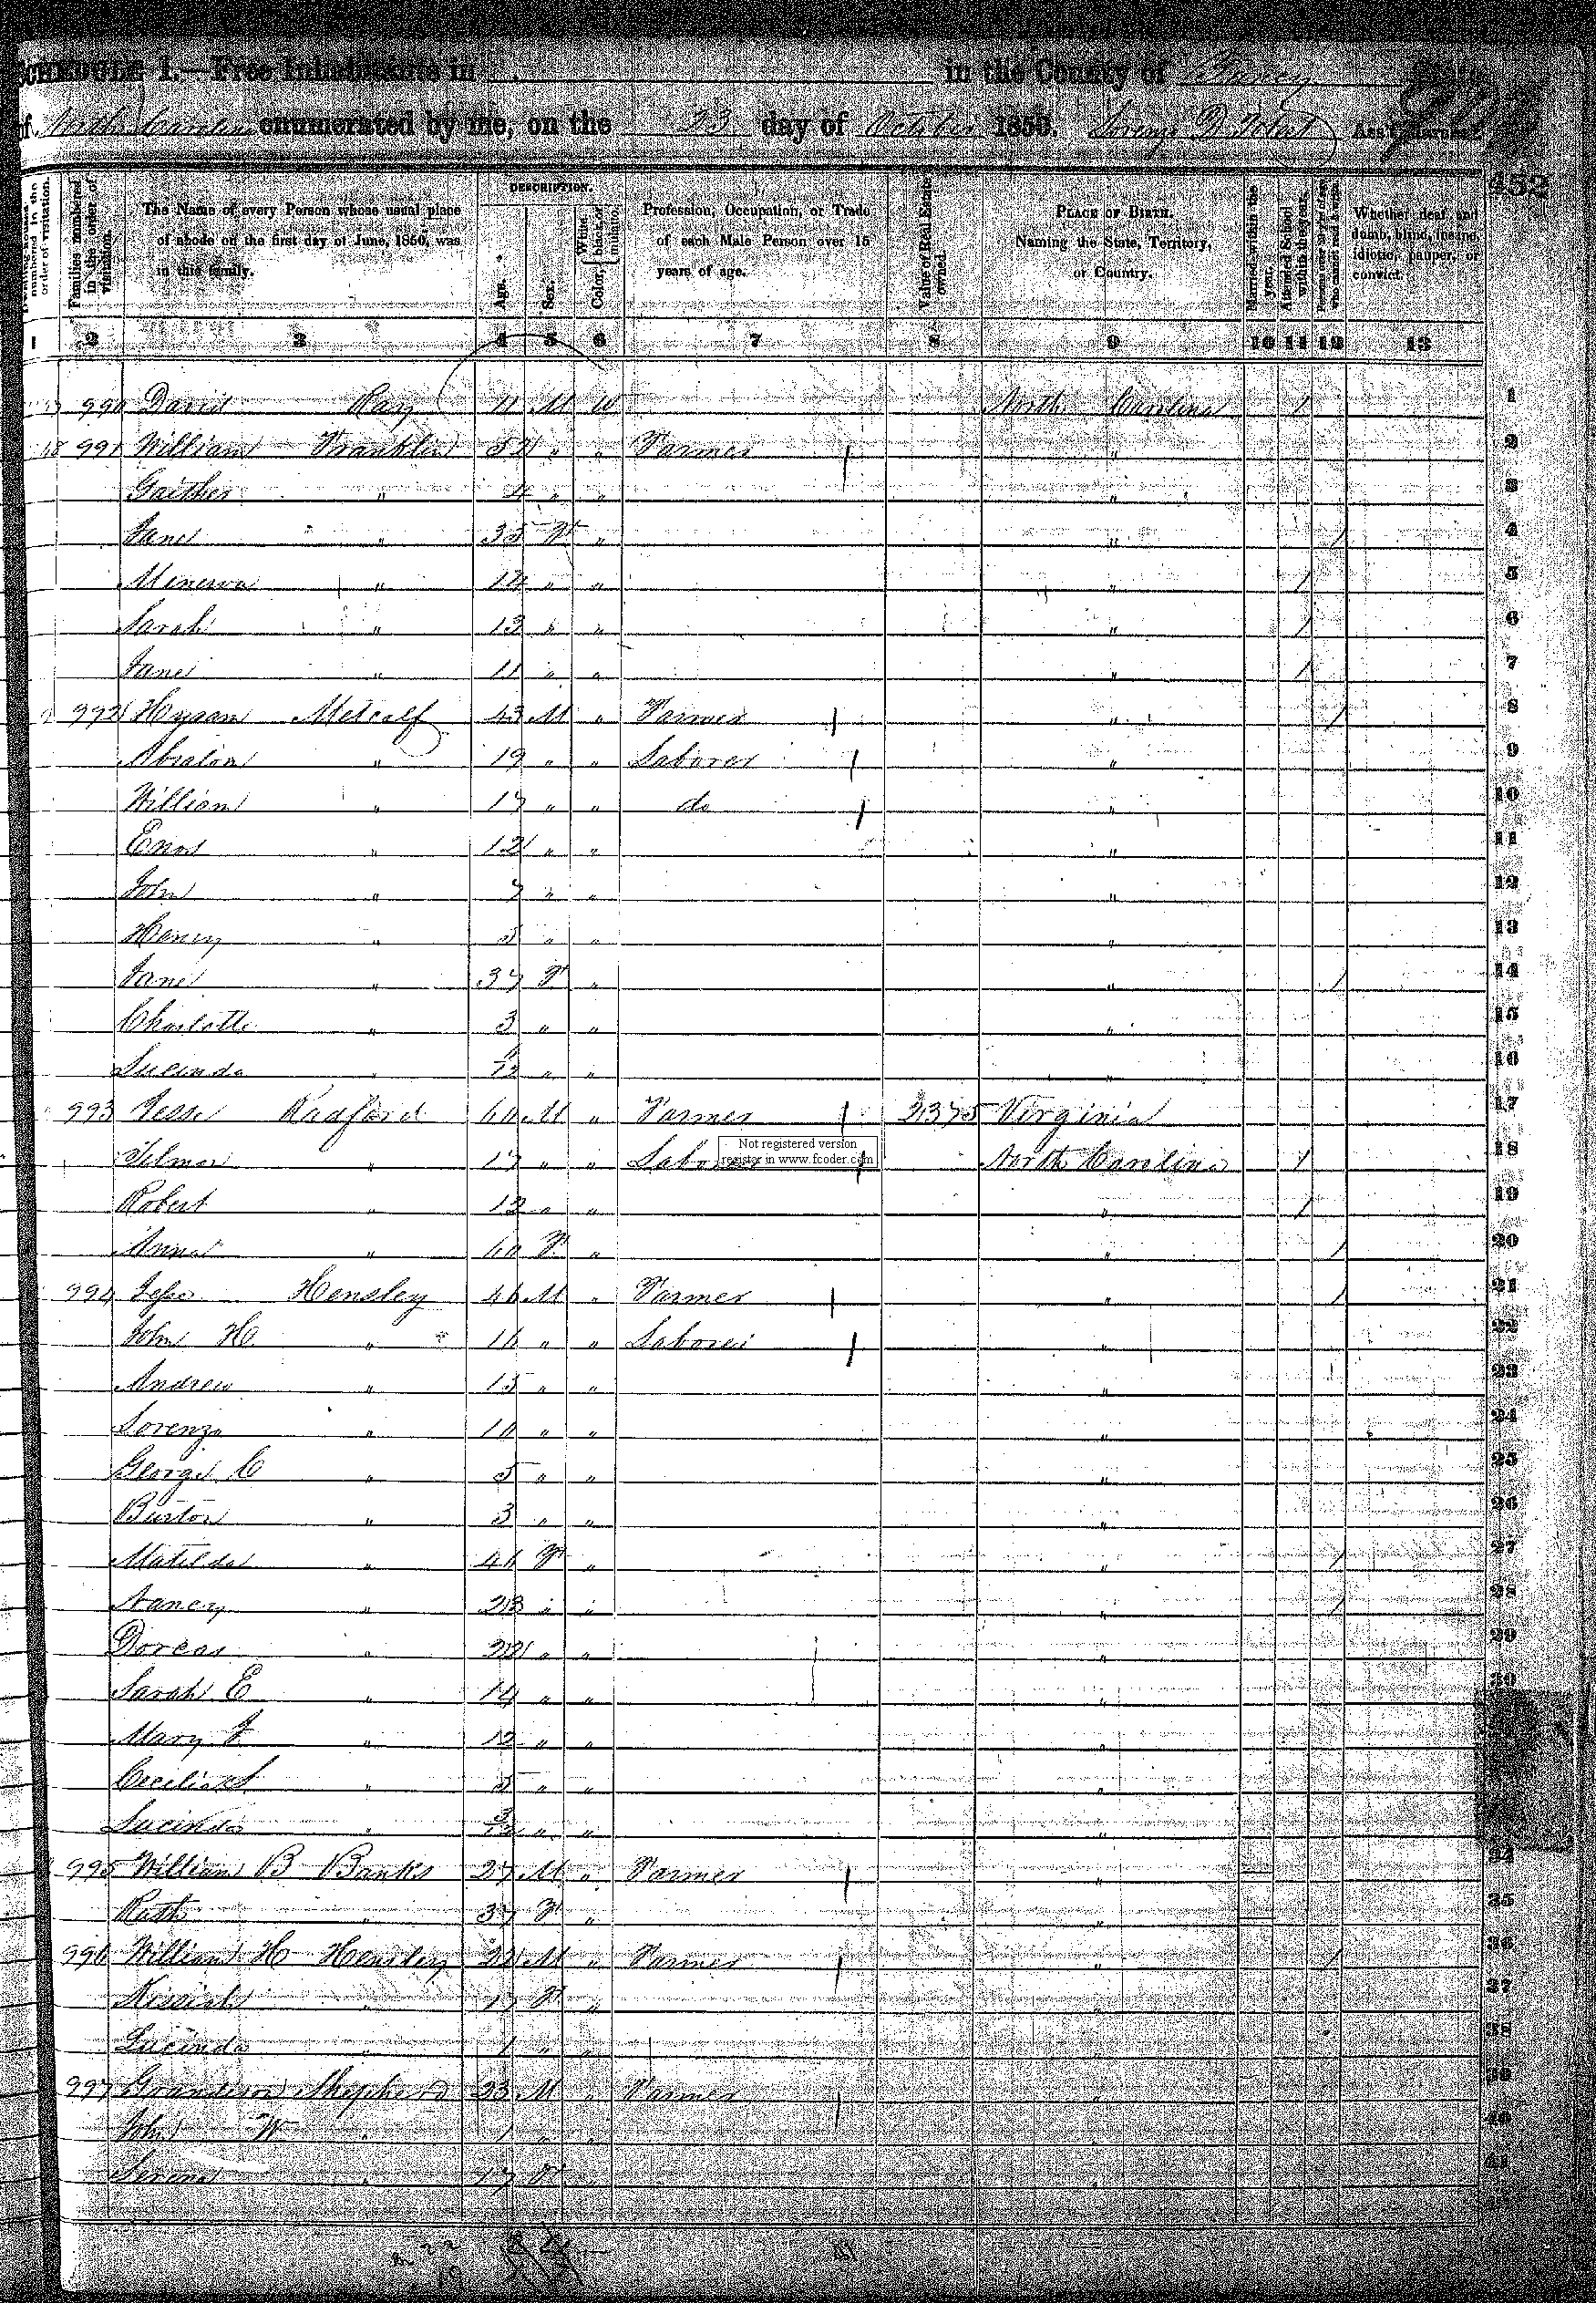 SCHEDULE I.—Free Inhabitants in in the County of Yancey State
of North Carolina enumerated by me, on the 23 day of October 1850. Lorenzo D. Ass't Marshal
452
numbered in the order of visitation.
Families numbered in the order of visitation.
The Name of every Person whose usual place of abode on the first day of June, 1850, was in this family.
DESCRIPTION.
Age.
Sex.
Color, White, black, or mulatto.
Profession, Occupation, or Trade of each Male Person over 15 years of age.
Value of Real Estate owned.
PLACE OF BIRTH. Naming the State, Territory, or Country.
Married within the year.
Attended School within the year.
Persons over 20 y'rs of age who cannot read & write.
Whether deaf and dumb, blind, insane, idiotic, pauper, or convict.
1 2 3 4 5 6 7 8 9 10 11 12 13
990 David Ray 11 M W North Carolina / 1
991 William Franklin " " Farmer " 2
Gaither " 4 " " " 3
Jane " 35 F " " / 4
Minerva " 14 " " " / 5
Sarah " 13 " " " / 6
Jane " 11 " " " / 7
992 Hyram Metcalf 43 M " Farmer " / 8
Absalom " 19 " " Laborer " 9
William " 17 " " do " 10
Enos " 12 " " " 11
John " 7 " " " 12
Henry " 5 " " " 13
Jane " 37 F " " / 14
Charlotte " 3 " " " 15
Lucinda " " " " 16
993 Jesse Radford 60 M " Farmer 2375 Virginia 17
Not registered version
register in www.fcoder.com
Tilmon " 17 " " Laborer North Carolina / 18
Robert " 12 " " " / 19
Anna " 60 F " " / 20
994 Jesse Hensley 46 M " Farmer " / 21
John H " 16 " " Laborer " 22
Andrew " 15 " " " 23
Lorenzo " 10 " " " 24
George C " 5 " " " 25
Burton " 3 " " " 26
Matilda " 46 F " " / 27
Nancy " 23 " " " / 28
Dorcas " 22 " " " 29
Sarah E " 14 " " " 30
Mary J " 12 " " "
Cecilia S " 5 " " "
Lucinda " 3/12 " " "
995 William B Banks 27 M " Farmer " 34
Ruth " 37 F " " 35
996 William H Hensley 22 M " Farmer " / 36
Kissiah " 17 F " " 37
Lucinda " 1 " " " 38
997 Granderson Shepherd 23 M " Farmer " 39
John W " 1 " " " 40
Serena " 17 F " " 41